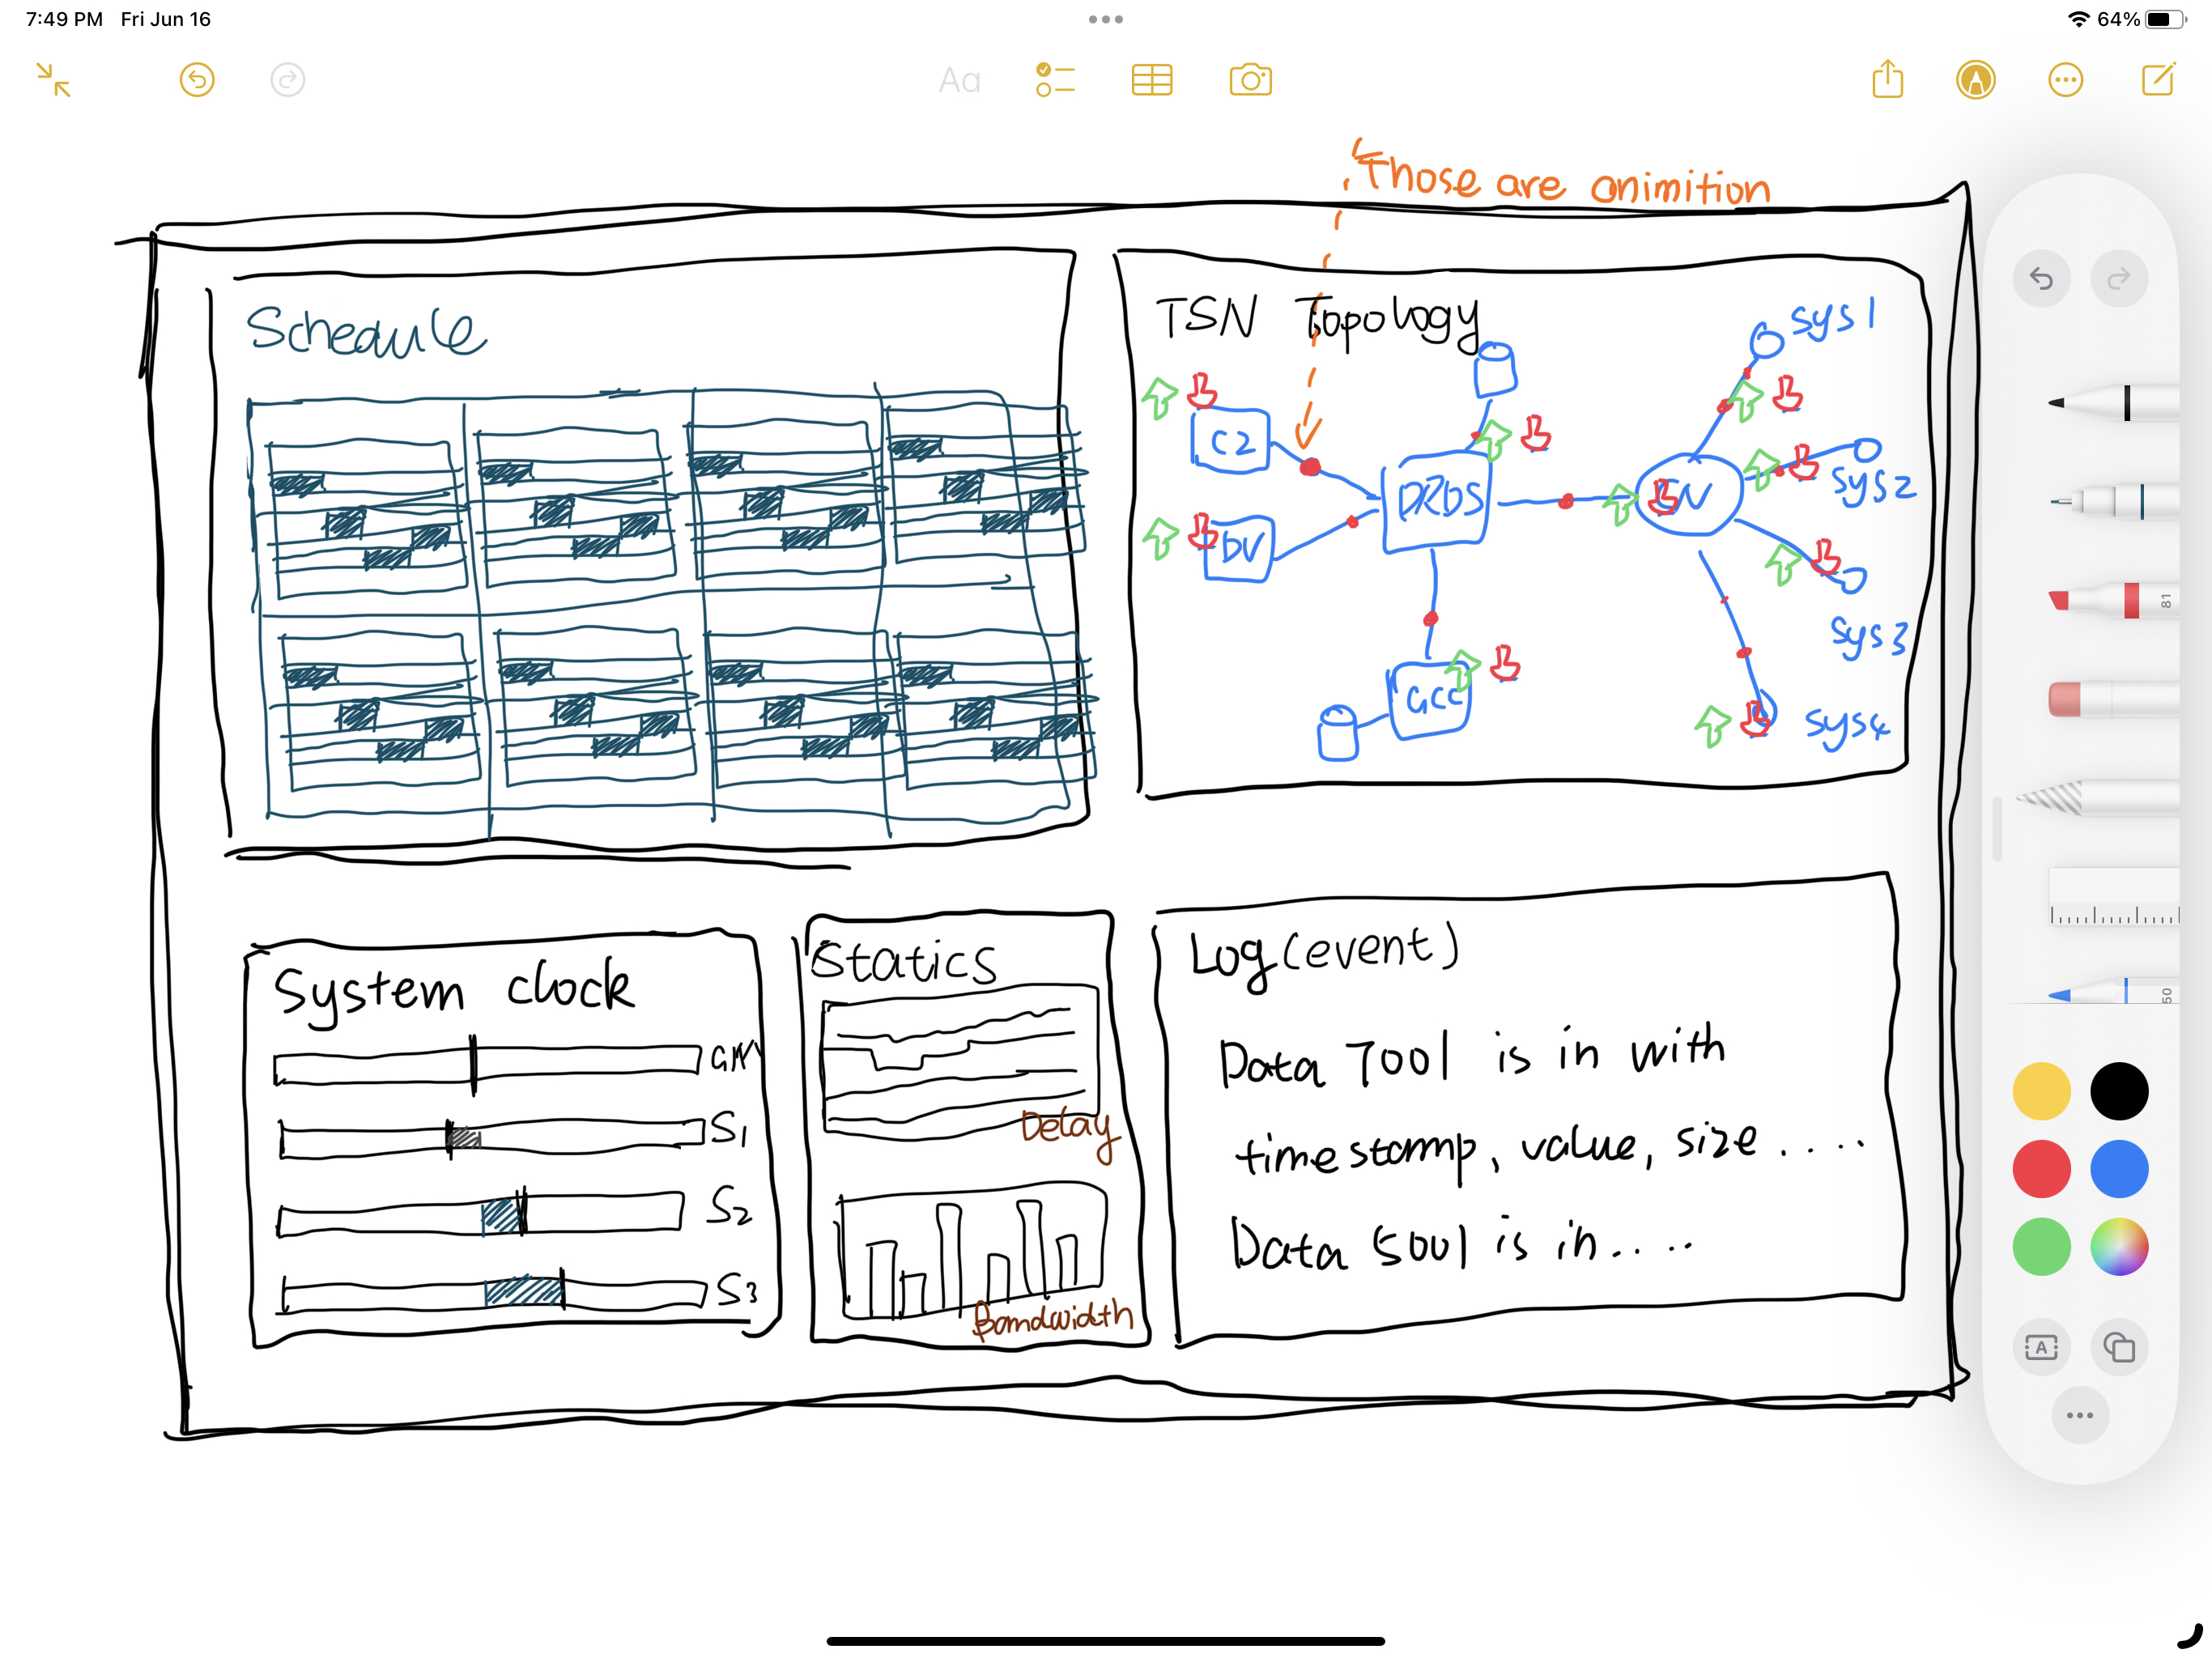 7:49 PM Fri Jun 16
64%
Aa
Those are animition
Schedule
TSN Topology
sys1
C2
DRDS
sys2
DV
sys3
GCC
sys4
System clock
GM
S1
S2
S3
Statics
Delay
Bandwidth
Log (event)
Data 7001 is in with
timestamp, value, size ....
Data 5001 is in....
81
50
A